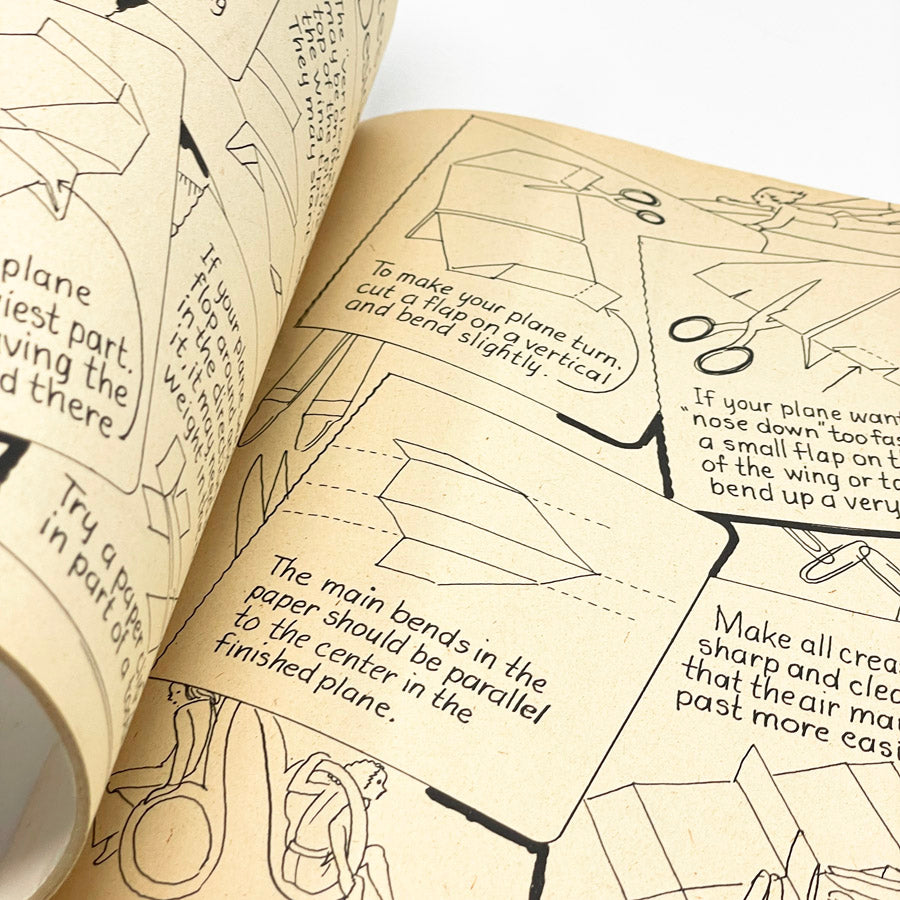 The
top of
the wing
They may
plane
iest part.
ving the
d there
If your plane
flop around
in the
it, it may
Try a paper
in part of a
To make your plane turn,
cut a flap on a vertical
and bend slightly.
If your plane want
"nose down" too fas
a small flap on t
of the wing or ta
bend up a very
The main bends in the
paper should be parallel
to the center in the
finished plane.
Make all crea
sharp and clea
that the air may
past more easi